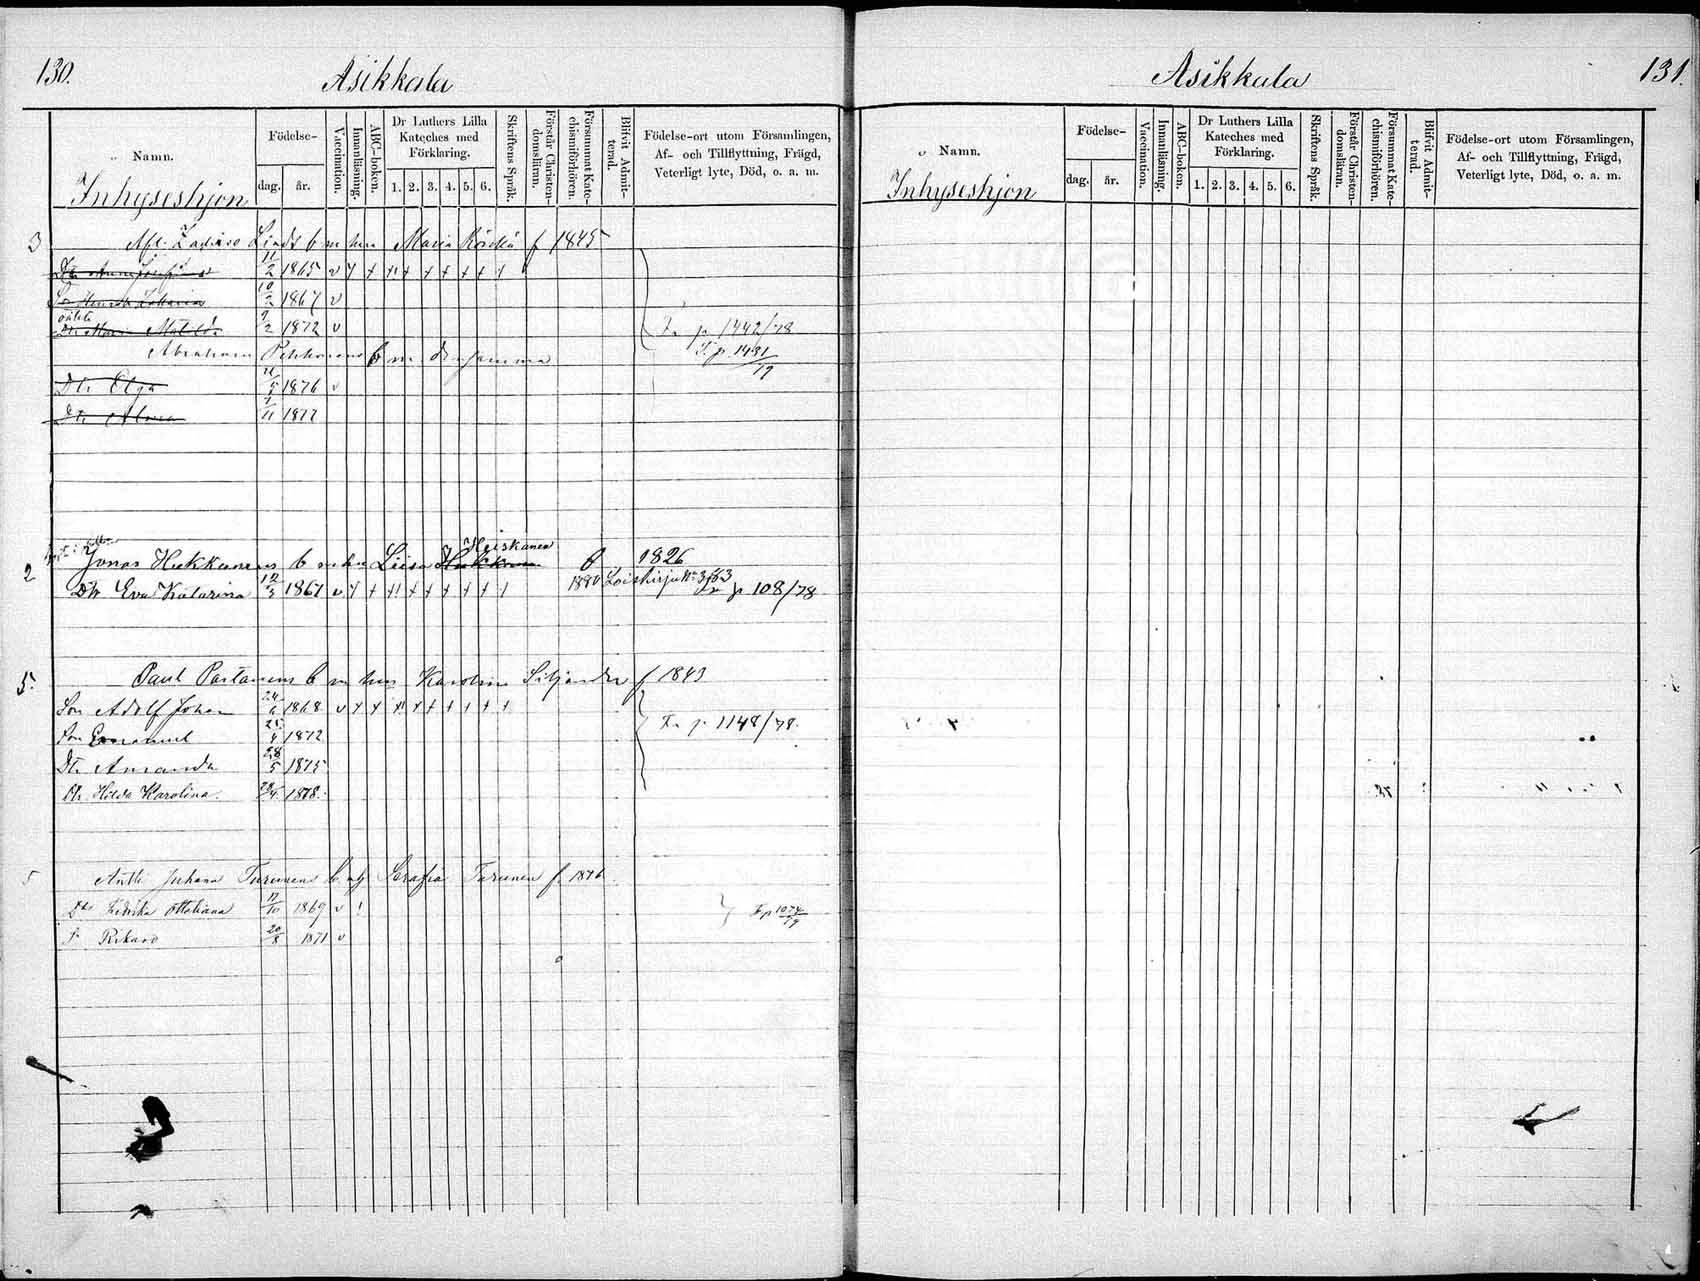 130.
Asikkala
Namn.
Födelse-
dag.
år.
Vaccination.
Innanläsning.
ABC-boken.
Dr Luthers Lilla Kateches med Förklaring.
1. 2. 3. 4. 5. 6.
Skriftens Språk.
Förstår Christendomsläran.
Försummat Katechismiförhören.
Blifvit Admitterad.
Födelse-ort utom Församlingen, Af- och Tillflyttning, Frägd, Veterligt lyte, Död, o. a. m.
Inhyseshjon
3
Maria f 1845
11/2 1865 v
Sn 10/2 1867 v
9/2 1872 v Fr p 1442/78
Abraham b m densamma F. p. 1431/79
Dtr Olga 1876 v
Dtr 1877
2
Jonas Hukkanens b m hu Liisa Heiskanen 1826
Dtr Eva Katarina 12/3 1867 v 1880 Fr p 108/78
5.
Paul Partanens b m hus Karolina f 1843
Son Adolf Johan 24/6 1868 v
Son Emanuel 25/4 1872 Fr p 1148/78
Dtr Amanda 28/5 1875
Dtr Hilda Karolina. 1878.
5
Juhana Turunens Turunen f
Fredrika Ottiliana 17/10 1869 v F p 1074/79
S. Rikard 20/8 1871 v
Asikkala
131.
Namn.
Födelse-
dag.
år.
Vaccination.
Innanläsning.
ABC-boken.
Dr Luthers Lilla Kateches med Förklaring.
1. 2. 3. 4. 5. 6.
Skriftens Språk.
Förstår Christendomsläran.
Försummat Katechismiförhören.
Blifvit Admitterad.
Födelse-ort utom Församlingen, Af- och Tillflyttning, Frägd, Veterligt lyte, Död, o. a. m.
Inhyseshjon